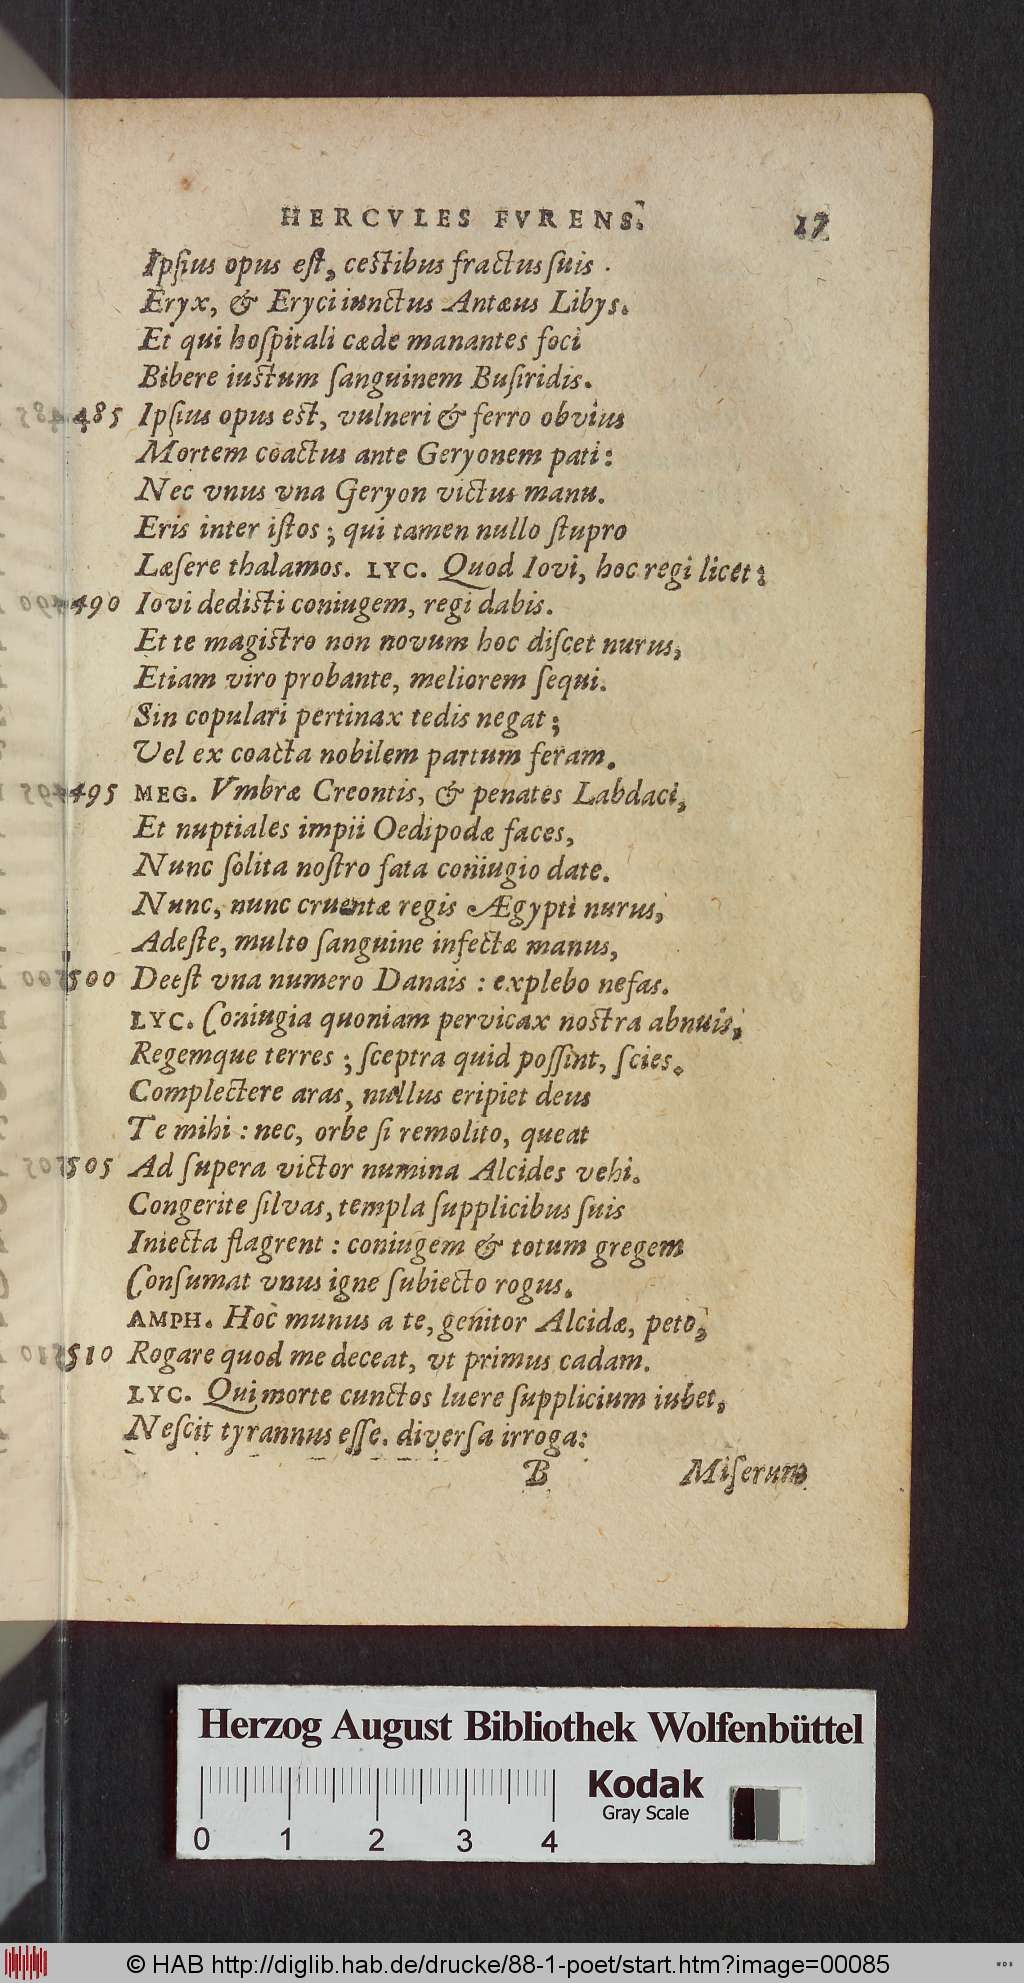 HERCVLES FVRENS. 17
Ipſius opus eſt, ceſtibus fractus ſuis.
Eryx, & Eryci iunctus Antæus Libys.
Et qui hoſpitali cæde manantes foci
Bibere iuſtum ſanguinem Buſiridis.
485 Ipſius opus eſt, vulneri & ferro obvius
Mortem coactus ante Geryonem pati:
Nec vnus vna Geryon victus manu.
Eris inter iſtos; qui tamen nullo ſtupro
Læſere thalamos. LYC. Quod Iovi, hoc regi licet:
490 Iovi dediſti coniugem, regi dabis.
Et te magiſtro non novum hoc diſcet nurus,
Etiam viro probante, meliorem ſequi.
Sin copulari pertinax tedis negat;
Vel ex coacta nobilem partum feram.
495 MEG. Vmbræ Creontis, & penates Labdaci,
Et nuptiales impii Oedipodæ faces,
Nunc ſolita noſtro fata coniugio date.
Nunc, nunc cruentæ regis Ægypti nurus,
Adeſte, multo ſanguine infectæ manus,
500 Deeſt vna numero Danais: explebo nefas.
LYC. Coniugia quoniam pervicax noſtra abnuis,
Regemque terres; ſceptra quid poſſint, ſcies.
Complectere aras, nullus eripiet deus
Te mihi: nec, orbe ſi remolito, queat
505 Ad ſupera victor numina Alcides vehi.
Congerite ſilvas, templa ſupplicibus ſuis
Iniecta flagrent: coniugem & totum gregem
Conſumat vnus igne ſubiecto rogus.
AMPH. Hoc munus a te, genitor Alcidæ, peto,
510 Rogare quod me deceat, vt primus cadam.
LYC. Qui morte cunctos luere ſupplicium iubet,
Neſcit tyrannus eſſe. diverſa irroga:
B Miſerum
Herzog August Bibliothek Wolfenbüttel
Kodak
Gray Scale
0 1 2 3 4
© HAB http://diglib.hab.de/drucke/88-1-poet/start.htm?image=00085